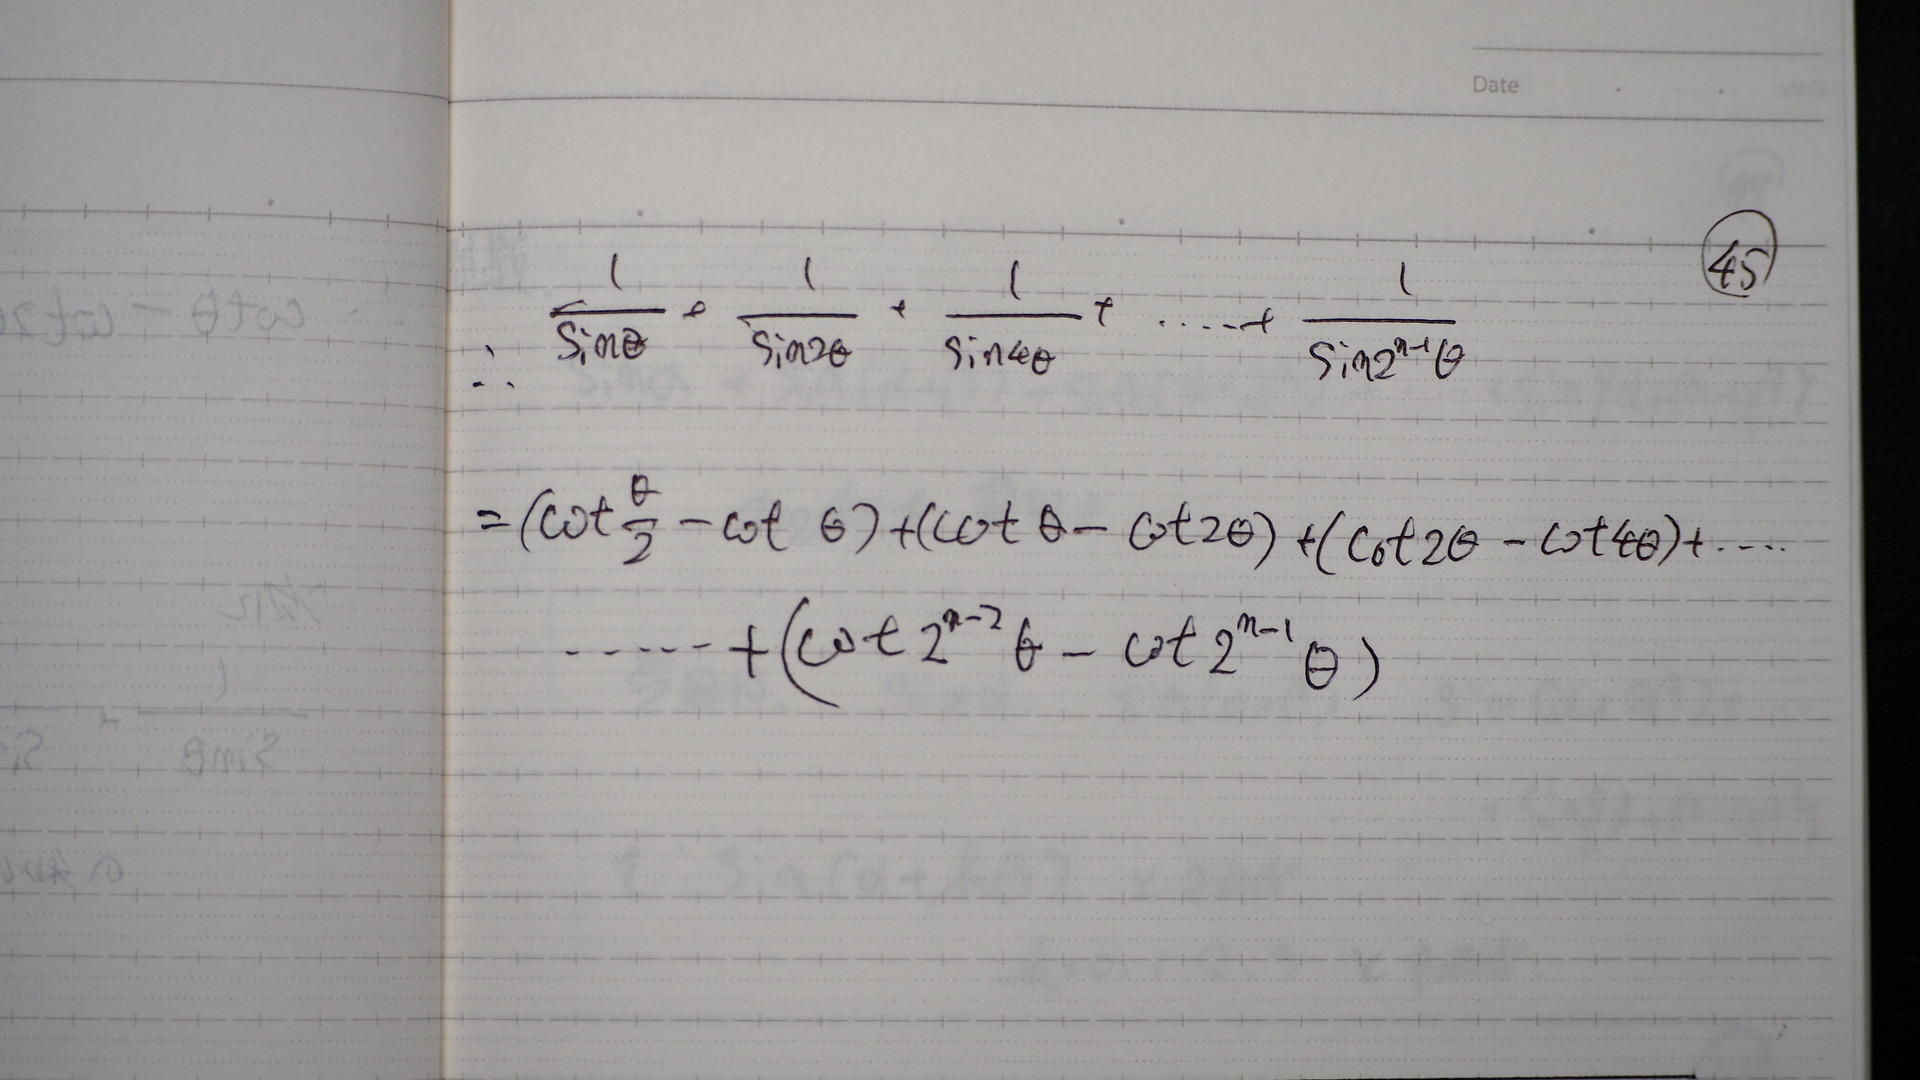 Date
45
∴ 1/sinθ + 1/sin2θ + 1/sin4θ + ..... + 1/sin2^{n-1}θ
= (cot θ/2 - cot θ) + (cot θ - cot2θ) + (cot2θ - cot4θ) + ....
...... + (cot 2^{n-2} θ - cot 2^{n-1} θ)